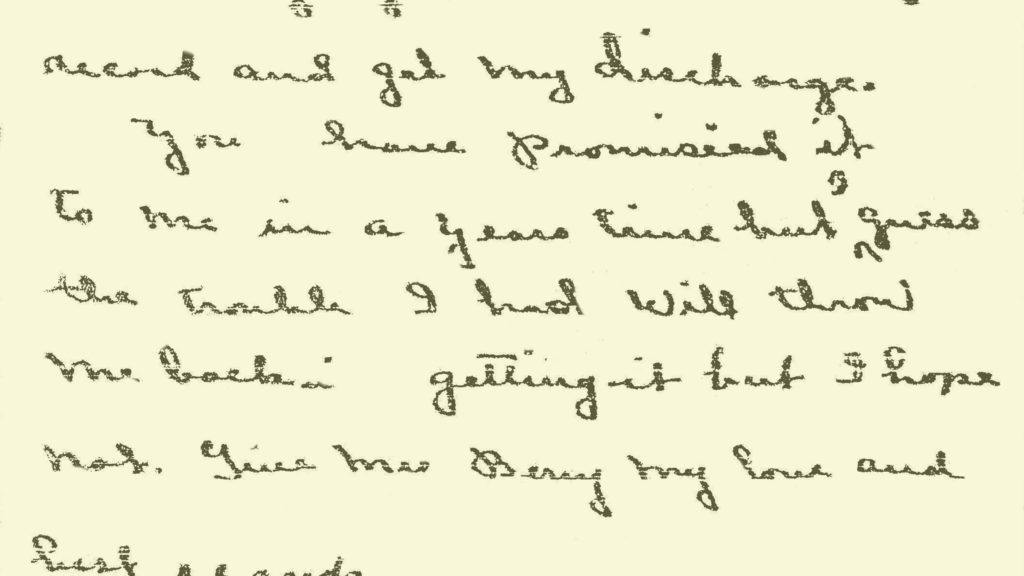 record and get my discharge.
You have promised it
to me in a years time but I guess
the trouble I had will throw
me back in getting it but I hope
not. Give Mrs Berry my love and
best regards